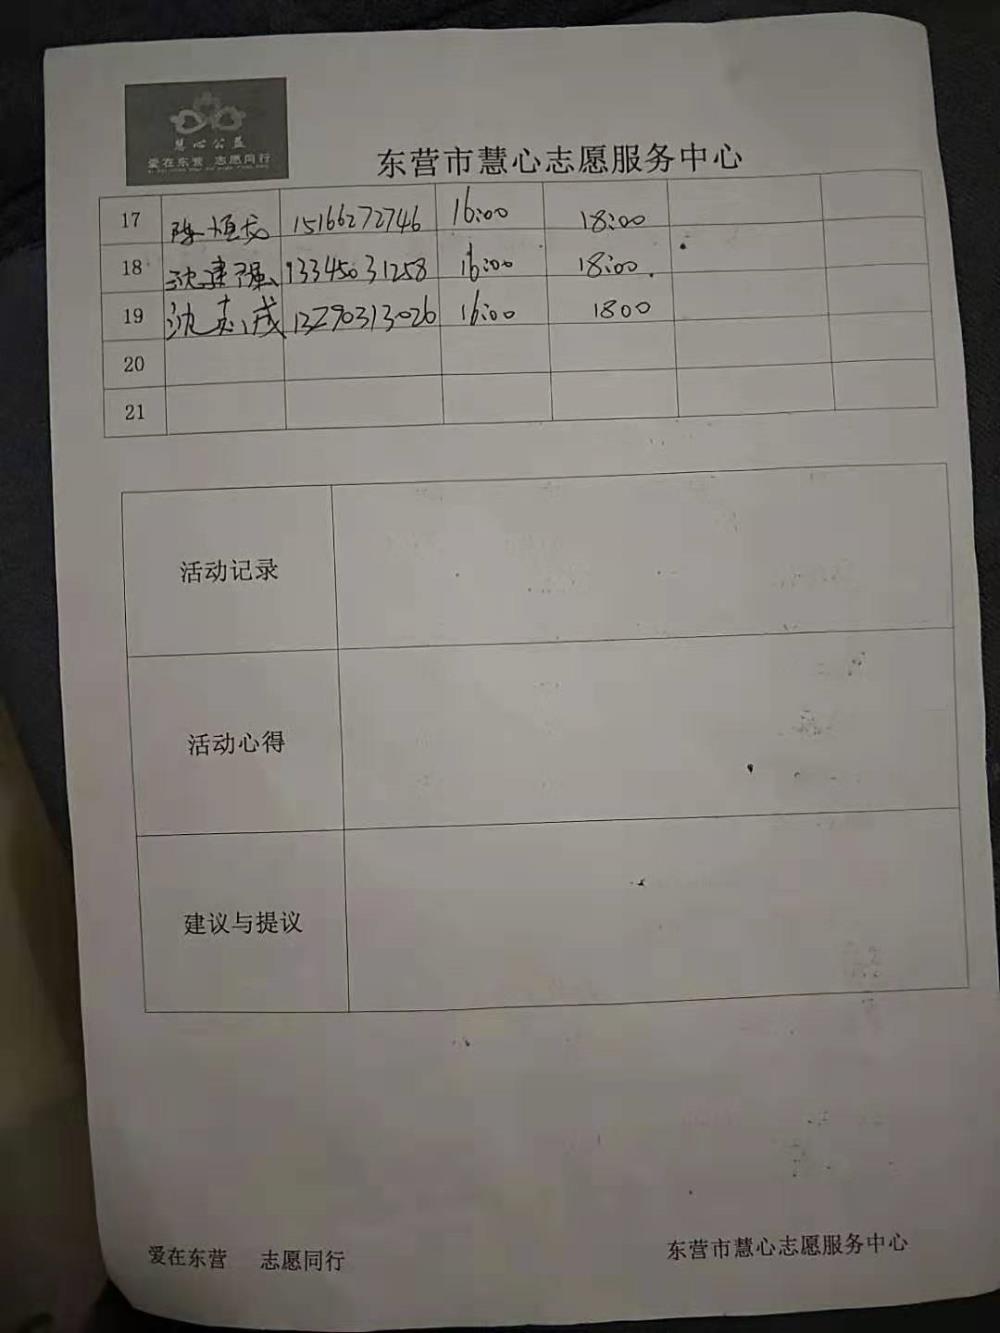 慧心公益
爱在东营 志愿同行
东营市慧心志愿服务中心
17 陈恒龙 15166272746 16:00 18:00
18 沈建强 13345031258 16:00 18:00
19 沈 13290313026 16:00 1800
20
21
活动记录
活动心得
建议与提议
爱在东营 志愿同行
东营市慧心志愿服务中心